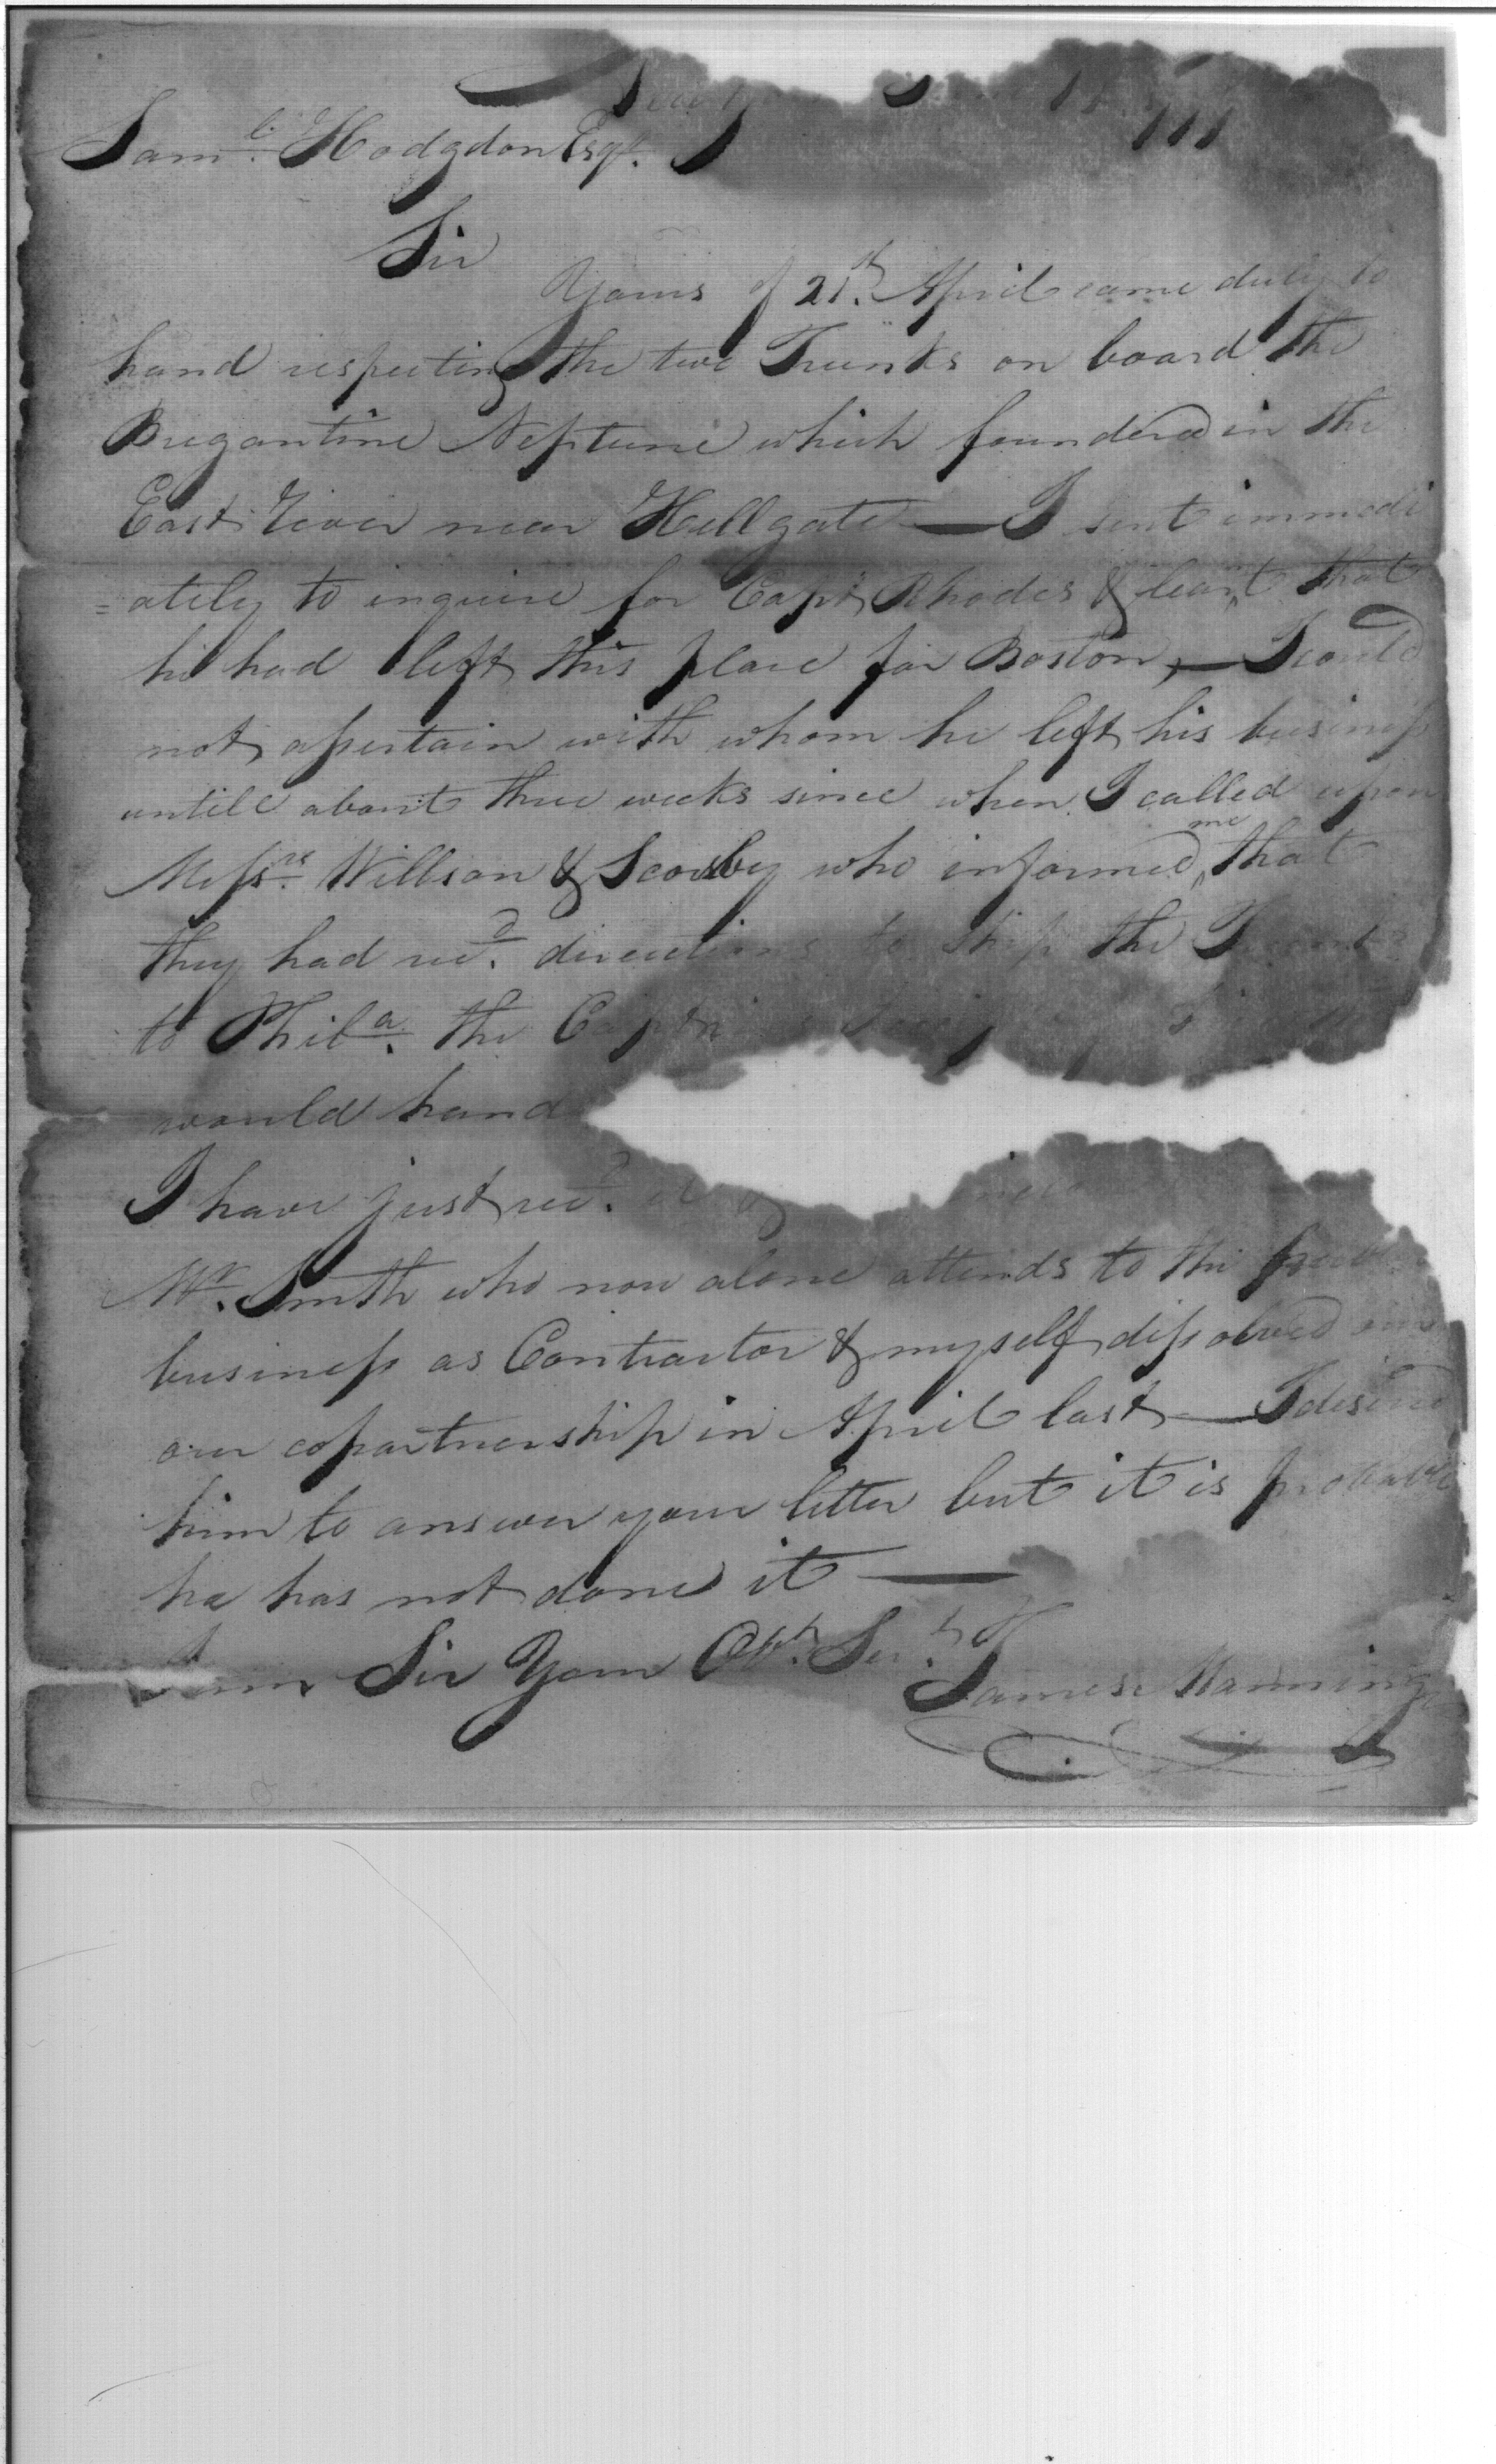 Saml. Hodgdon Esqr.
Sir
Yours of 21st. April came duly to
hand respecting the two Trunks on board the
Brigantine Neptune which foundered in the
East River near Hellgate — I sent immedi
=ately to inquire for Capt. Rhodes & learnt that
he had left this place for Boston, — I could
not assertain with whom he left his business
untill about three weeks since when I called upon
Messrs. Willson & Scorsby who informed me that
they had recd. directions to ship the Trunks
to Phila. the
would hand
I have just recd.
Mr. Smith who now alone attends to the
business as Contractor & myself dissolved
our copartnership in April last — I desired
him to answer your letter but it is probable
he has not done it —
Sir Your Obt. Servt.
James Manning